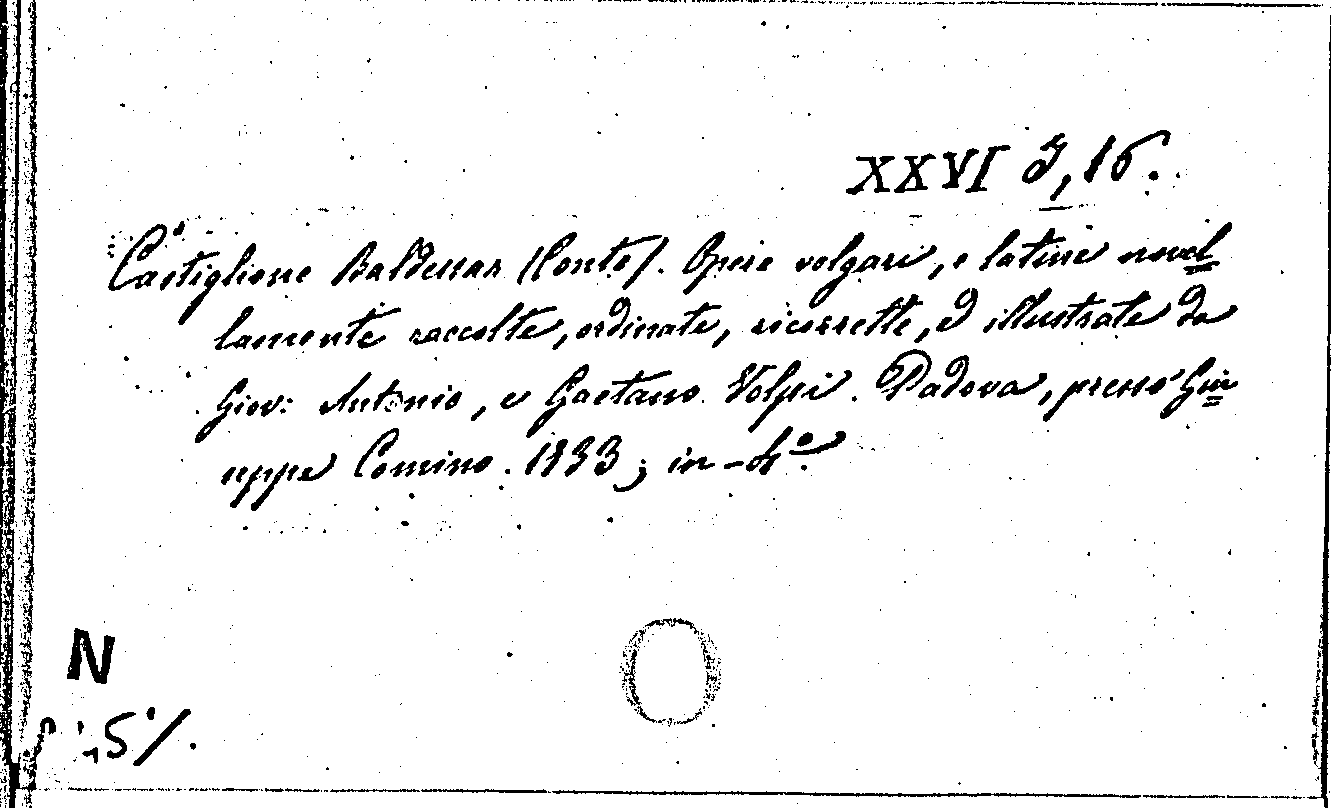 XXVI I, 16.
Castiglione Baldessar (Conte). Opere volgari, e latine novel=
lamente raccolte, ordinate, ricorrette, ed illustrate da
Giov: Antonio, e Gaetano Volpi. Padova, presso Giu=
seppe Comino. 1833; in-4°.
N